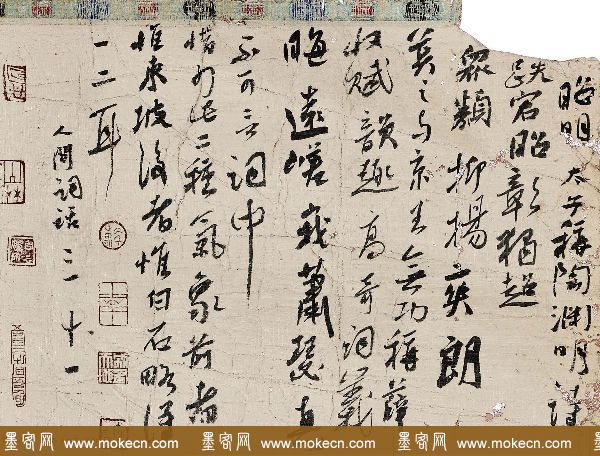 昭明太子稱陶渊明诗
跌宕昭彰獨超
衆類抑揚爽朗
莫之与京王無功稱薛
收赋韻趣高奇词義
晦遠嵯峨蕭瑟真
不可言词中
惜少此二種氣象前者
惟東坡後者惟白石略得
一二耳
人間词话 三一 十一
墨客网 www.mokecn.com 墨客网 www.mokecn.com 墨客网 www.mokecn.com